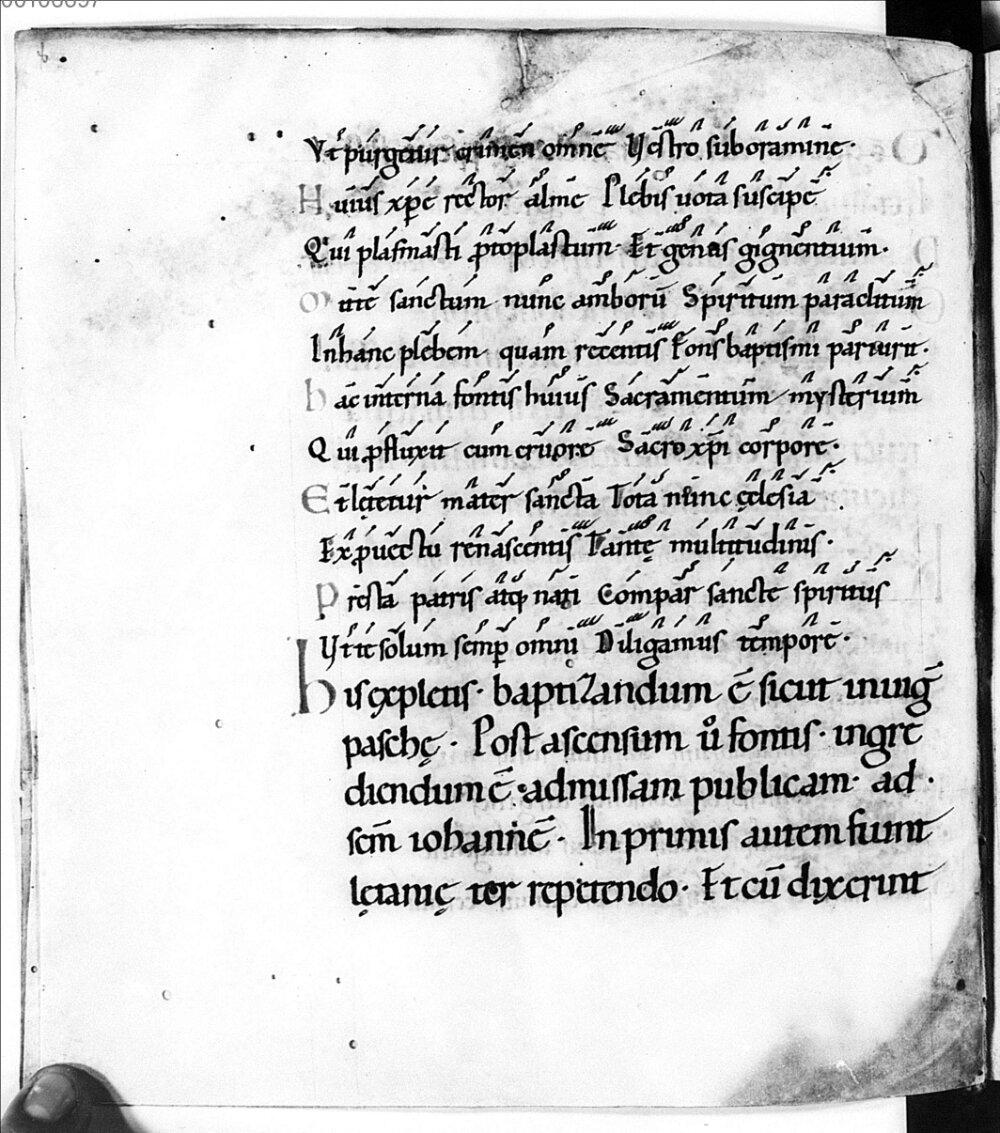 Vt purgetur crimen omne Vestro suboramine·
Huius xp̄e rector alme Plebis uota suscipe
Qui plasmasti ꝓtoplastum· Et genus gignentium·
Mitte sanctum nunc amborū Spiritum paraclitum
Inhanc plebem quam recentis Fons baptismi parturit·
hac interna fontis huius Sacramentum mysterium
Qui ꝓfluxit cum cruore Sacro xp̄i corpore·
Et lętetur mater sancta Tota nunc ęclesia·
Ex ꝓuectu renascentis Tantę multitudinis·
Presta patris atq; nati Compar sancte spiritus
Vt te solum semꝑ omni Diligamus tempore·
his expletis· baptizandum ē sicut inuiḡ
paschę· Post ascensum ů fontis· ingre
diendum ē· admissam publicam· ad·
scm̄ iohannē· In primis autem fiunt
lętanię ter repetendo· Et cū dixerint